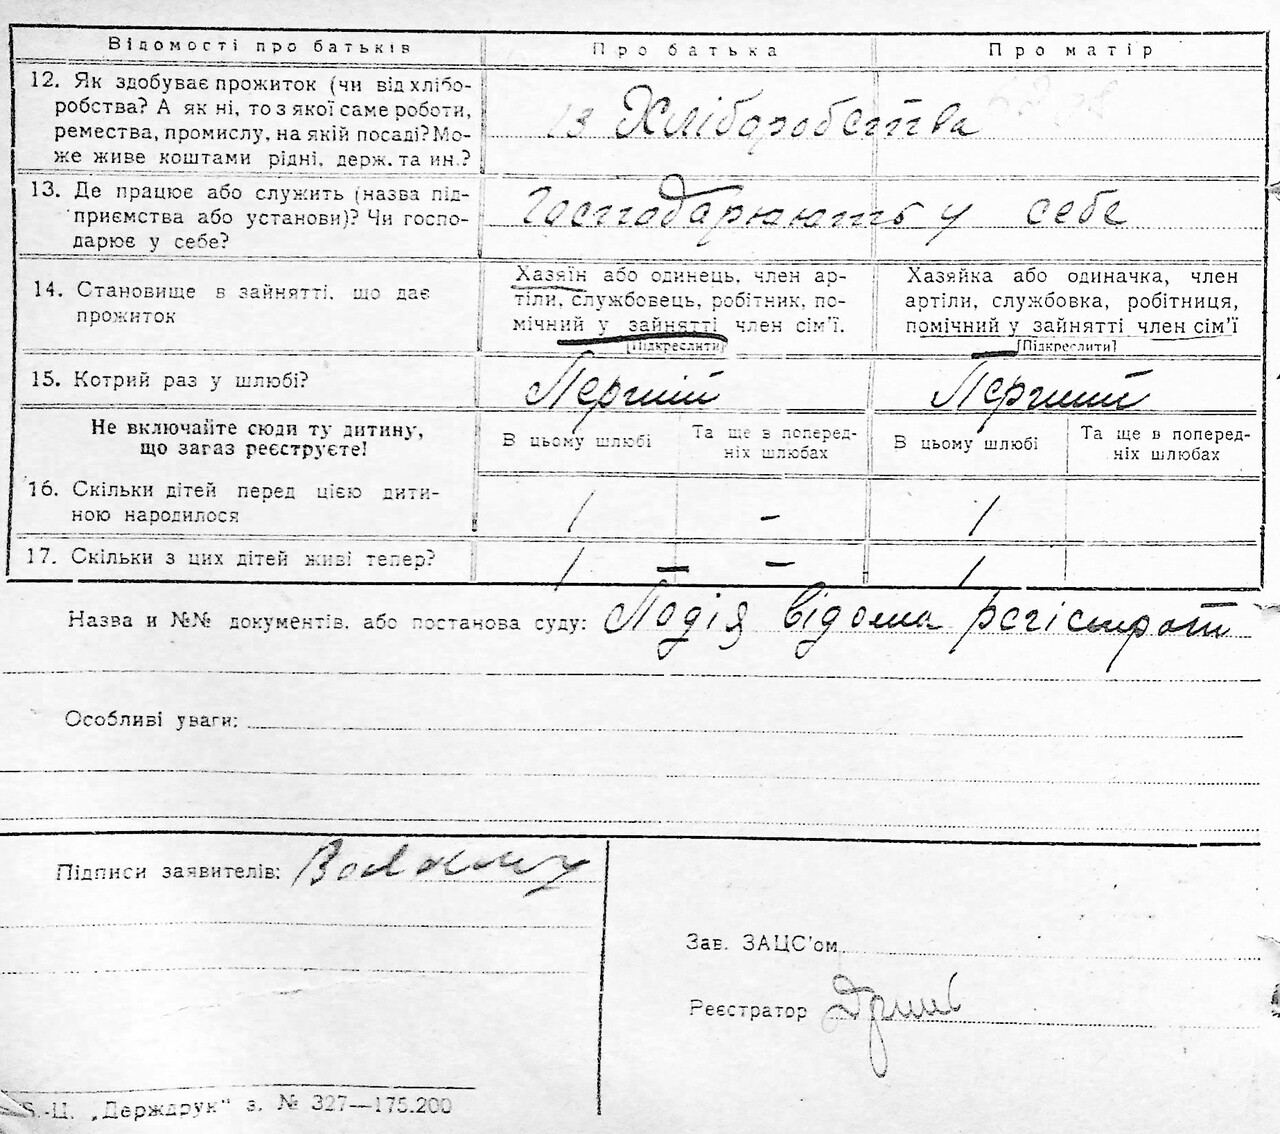 Відомості про батьків
Про батька
Про матір
12. Як здобуває прожиток (чи від хлібо-
робства? А як ні, то з якої саме роботи,
ремества, промислу, на якій посаді? Мо-
же живе коштами рідні, держ. та ин.?
із Хліборобства
13. Де працює або служить (назва під-
приємства або установи)? Чи госпо-
дарює у себе?
Господарюють у себе
14. Становище в зайнятті, що дає
прожиток
Хазяїн або одинець, член ар-
тіли, службовець, робітник, по-
мічний у зайнятті член сім'ї.
[Підкреслити]
Хазяйка або одиначка, член
артіли, службовка, робітниця,
помічний у зайнятті член сім'ї
[Підкреслити]
15. Котрий раз у шлюбі?
Перший
Перший
Не включайте сюди ту дитину,
що зараз реєструєте!
В цьому шлюбі
Та ще в поперед-
ніх шлюбах
В цьому шлюбі
Та ще в поперед-
ніх шлюбах
16. Скільки дітей перед цією дити-
ною народилося
1
-
1
17. Скільки з цих дітей живі тепер?
1
-
-
1
Назва и №№ документів, або постанова суду: Подія відома регістрат
Особливі уваги:
Підписи заявителів:
Зав. ЗАЦС'ом
Реєстратор
S.-Ц. „Держдрук" з. № 327—175.200